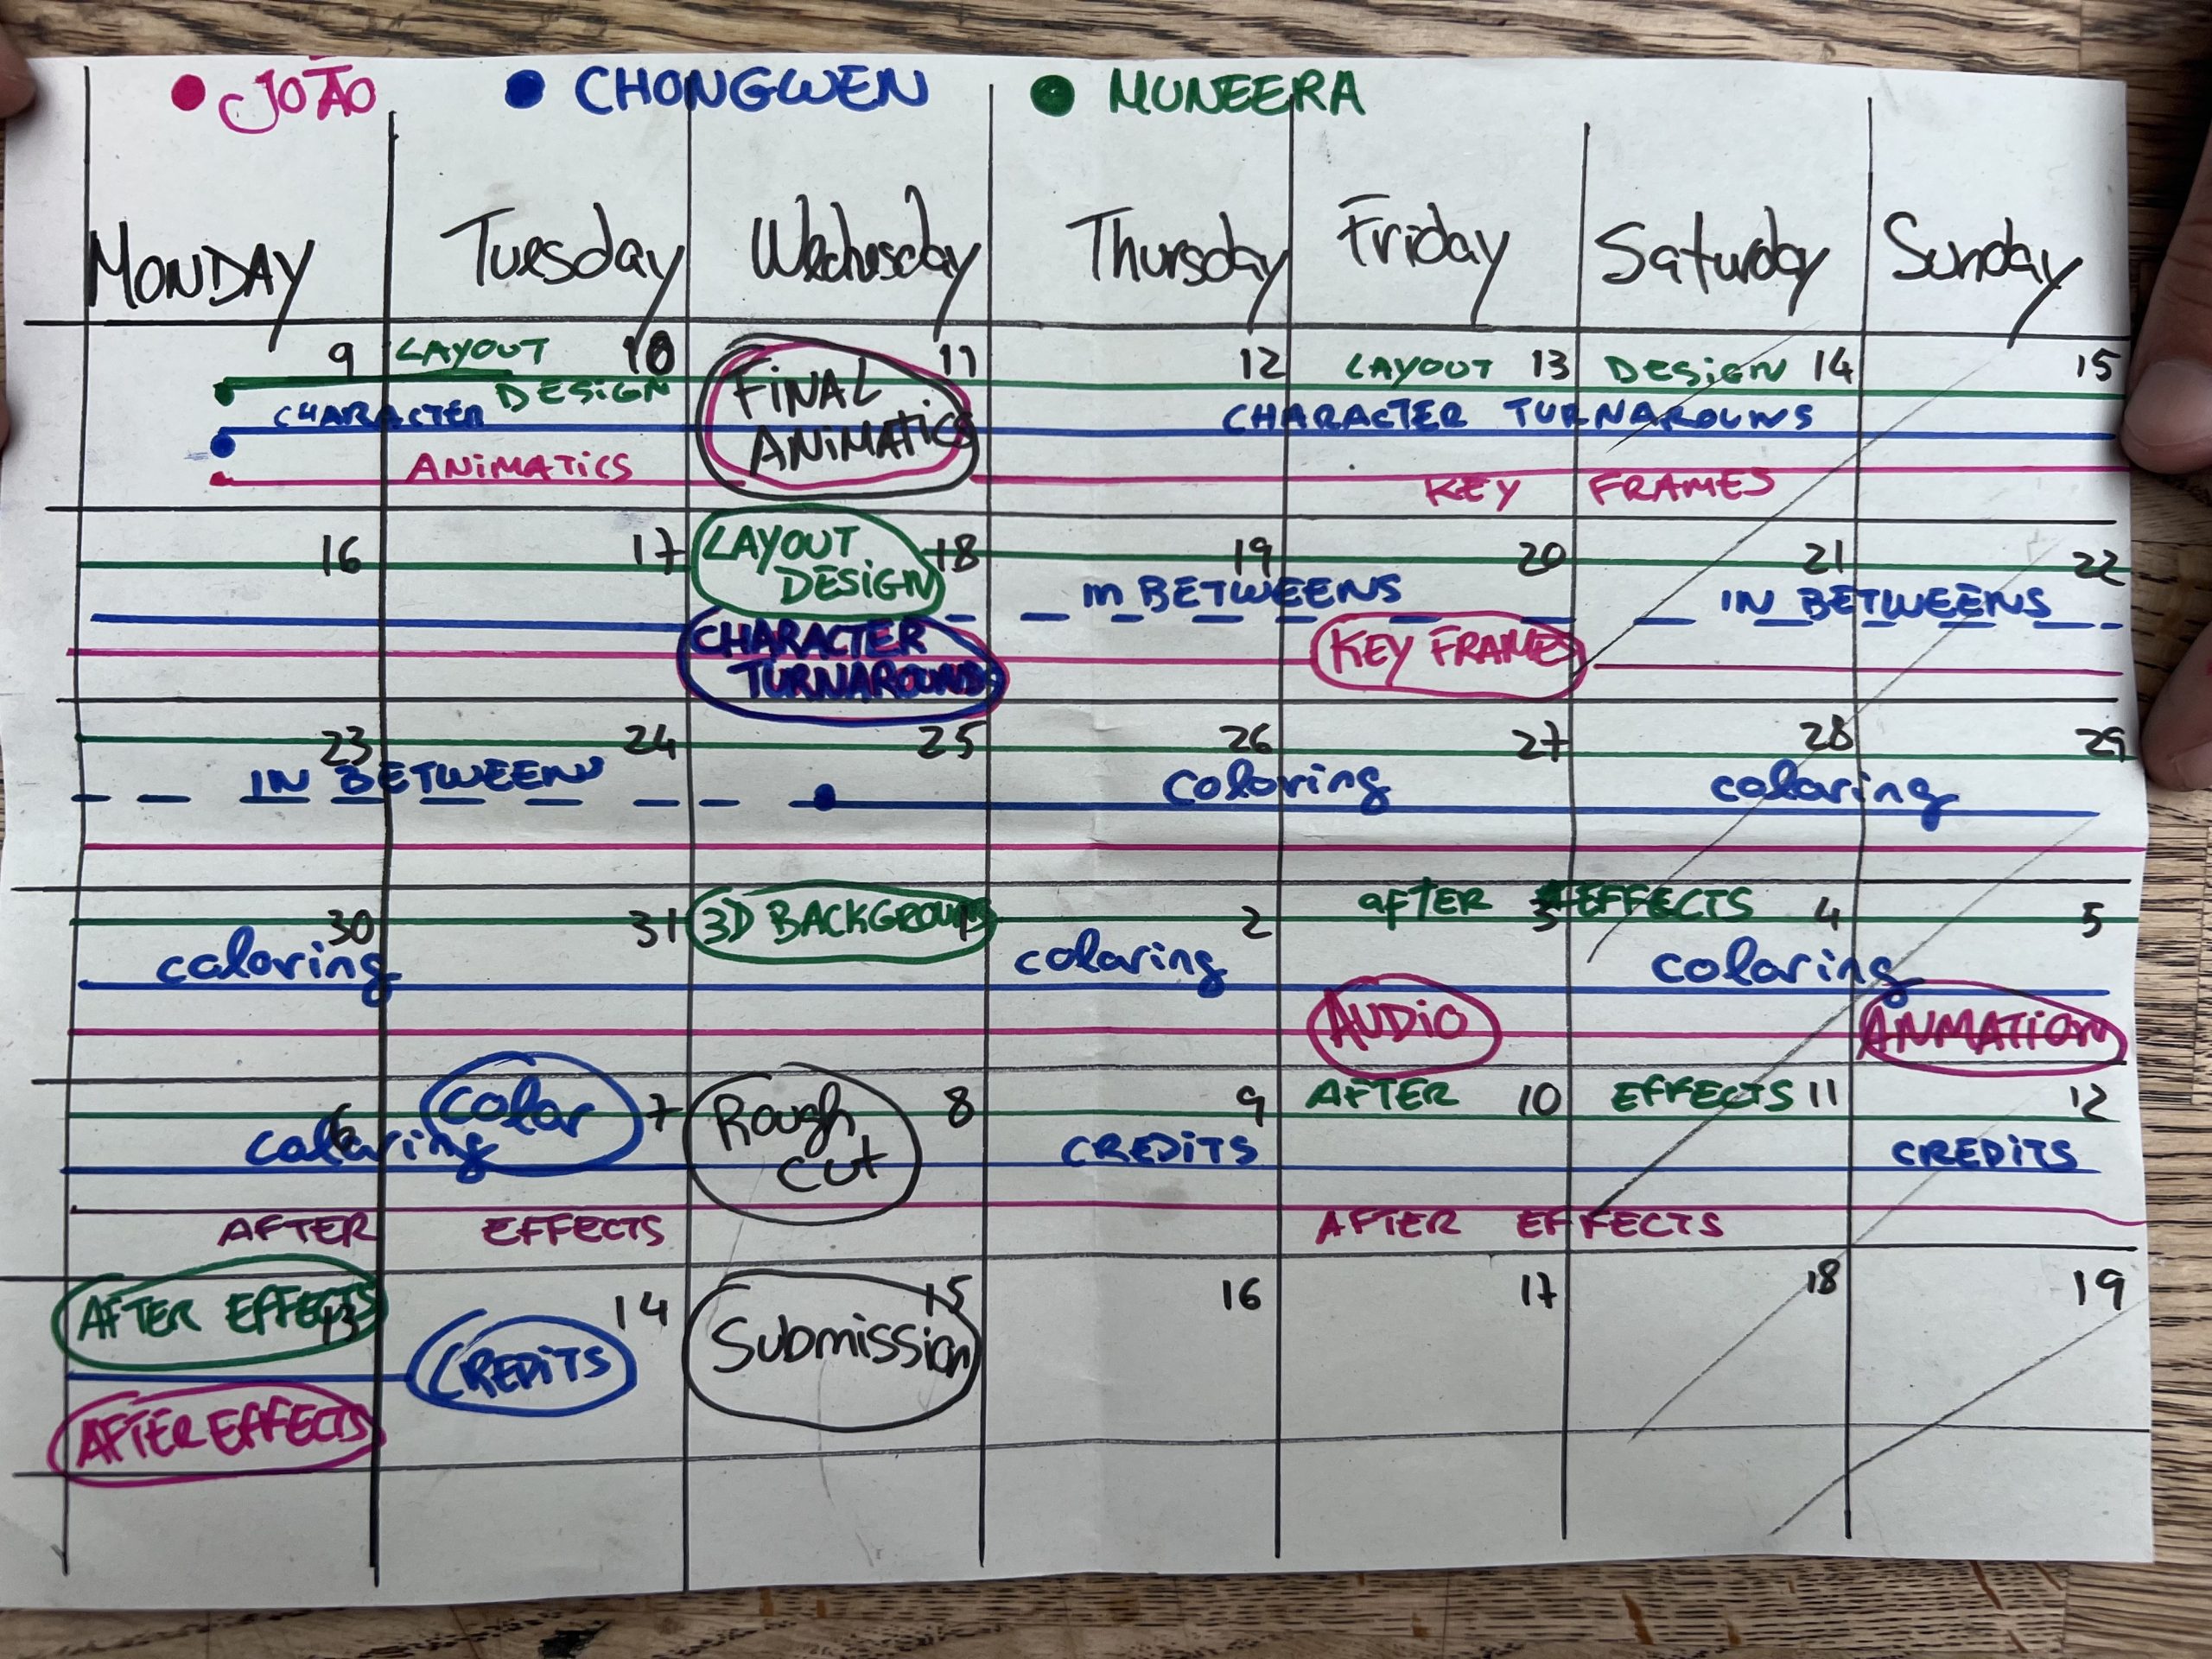 JOÃO CHONGWEN MUNEERA
MONDAY Tuesday Wednesday Thursday Friday Saturday Sunday
9 LAYOUT 10 11 12 LAYOUT 13 DESIGN 14 15
DESIGN
FINAL
ANIMATICS
CHARACTER CHARACTER TURNAROUNS
ANIMATICS KEY FRAMES
16 17 LAYOUT 18 19 20 21 22
DESIGN
in BETWEENS IN BETWEENS
CHARACTER
TURNAROUNDS
KEY FRAMES
23 24 25 26 27 28 29
IN BETWEENS coloring coloring
30 31 3D BACKGROUNDS 1 2 aFTER 3 EFFECTS 4 5
coloring coloring coloring
AUDIO ANIMATION
6 color 7 Rough 8 9 AFTER 10 EFFECTS 11 12
cut
coloring CREDITS CREDITS
AFTER EFFECTS AFTER EFFECTS
AFTER EFFECTS 13 14 15 16 17 18 19
CREDITS Submission
AFTER EFFECTS